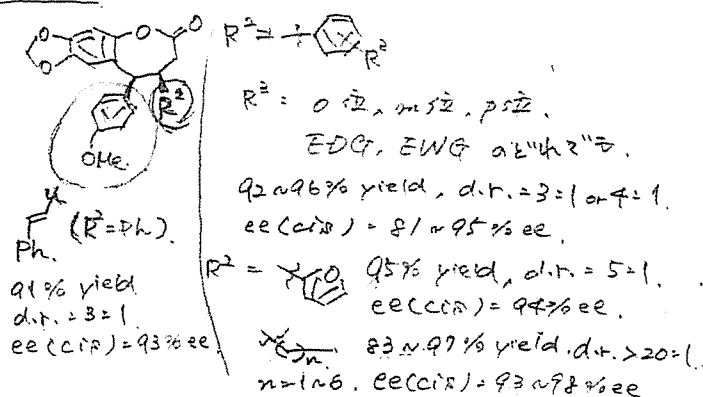 O O
O
O
R²
OMe.
Ph. (R²=Ph).
91% yield
d.r. = 3=1
ee(cis)=93%ee
R² =
R³
R³ : o位、m位、p位、
EDG, EWG のどれでも.
92~96% yield, d.r. = 3=1 or 4=1.
ee(cis) = 81~95%ee.
R² = O 95% yield, d.r. = 5=1.
ee(cis) = 94%ee.
n 83~97% yield. d.r. >20=1.
n=1~6. ee(cis)=93~98%ee